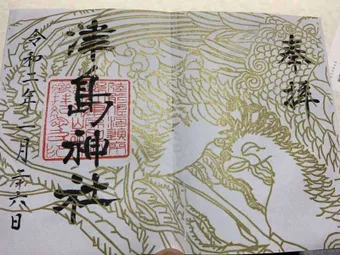 奉拝
津島神社
令和二年二月二十六日